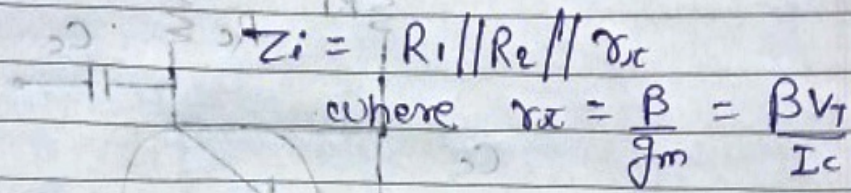 Zi = R1 || R2 || rπ
where rπ = β/gm = βVT/Ic